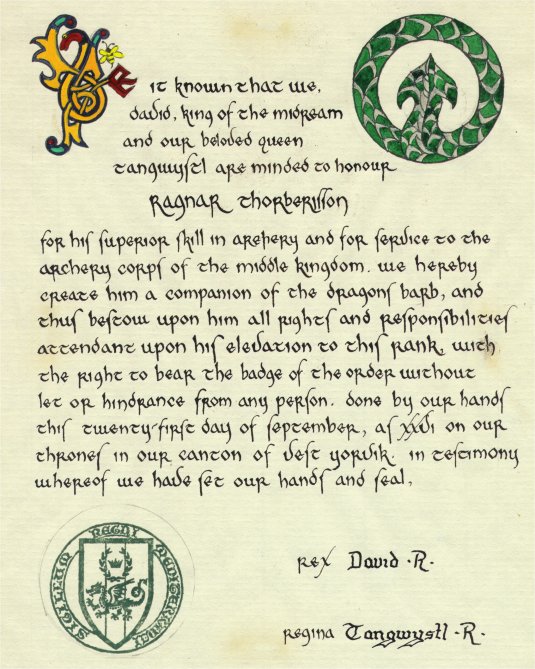 it known that we,
david, king of the midream
and our beloved queen
tangwystl are minded to honour
Ragnar thorberisson
for his superior skill in archery and for service to the
archery corps of the middle kingdom. we hereby
create him a companion of the dragons barb, and
thus bestow upon him all rights and responsibilities
attendant upon his elevation to this rank, with
the right to bear the badge of the order without
let or hindrance from any person. done by our hands
this twenty-first day of september, as xxvi on our
thrones in our canton of vest yorvik. in testimony
whereof we have set our hands and seal,
SIGILLUM REGNI
rex David · R.
regina Tangwystl · R.